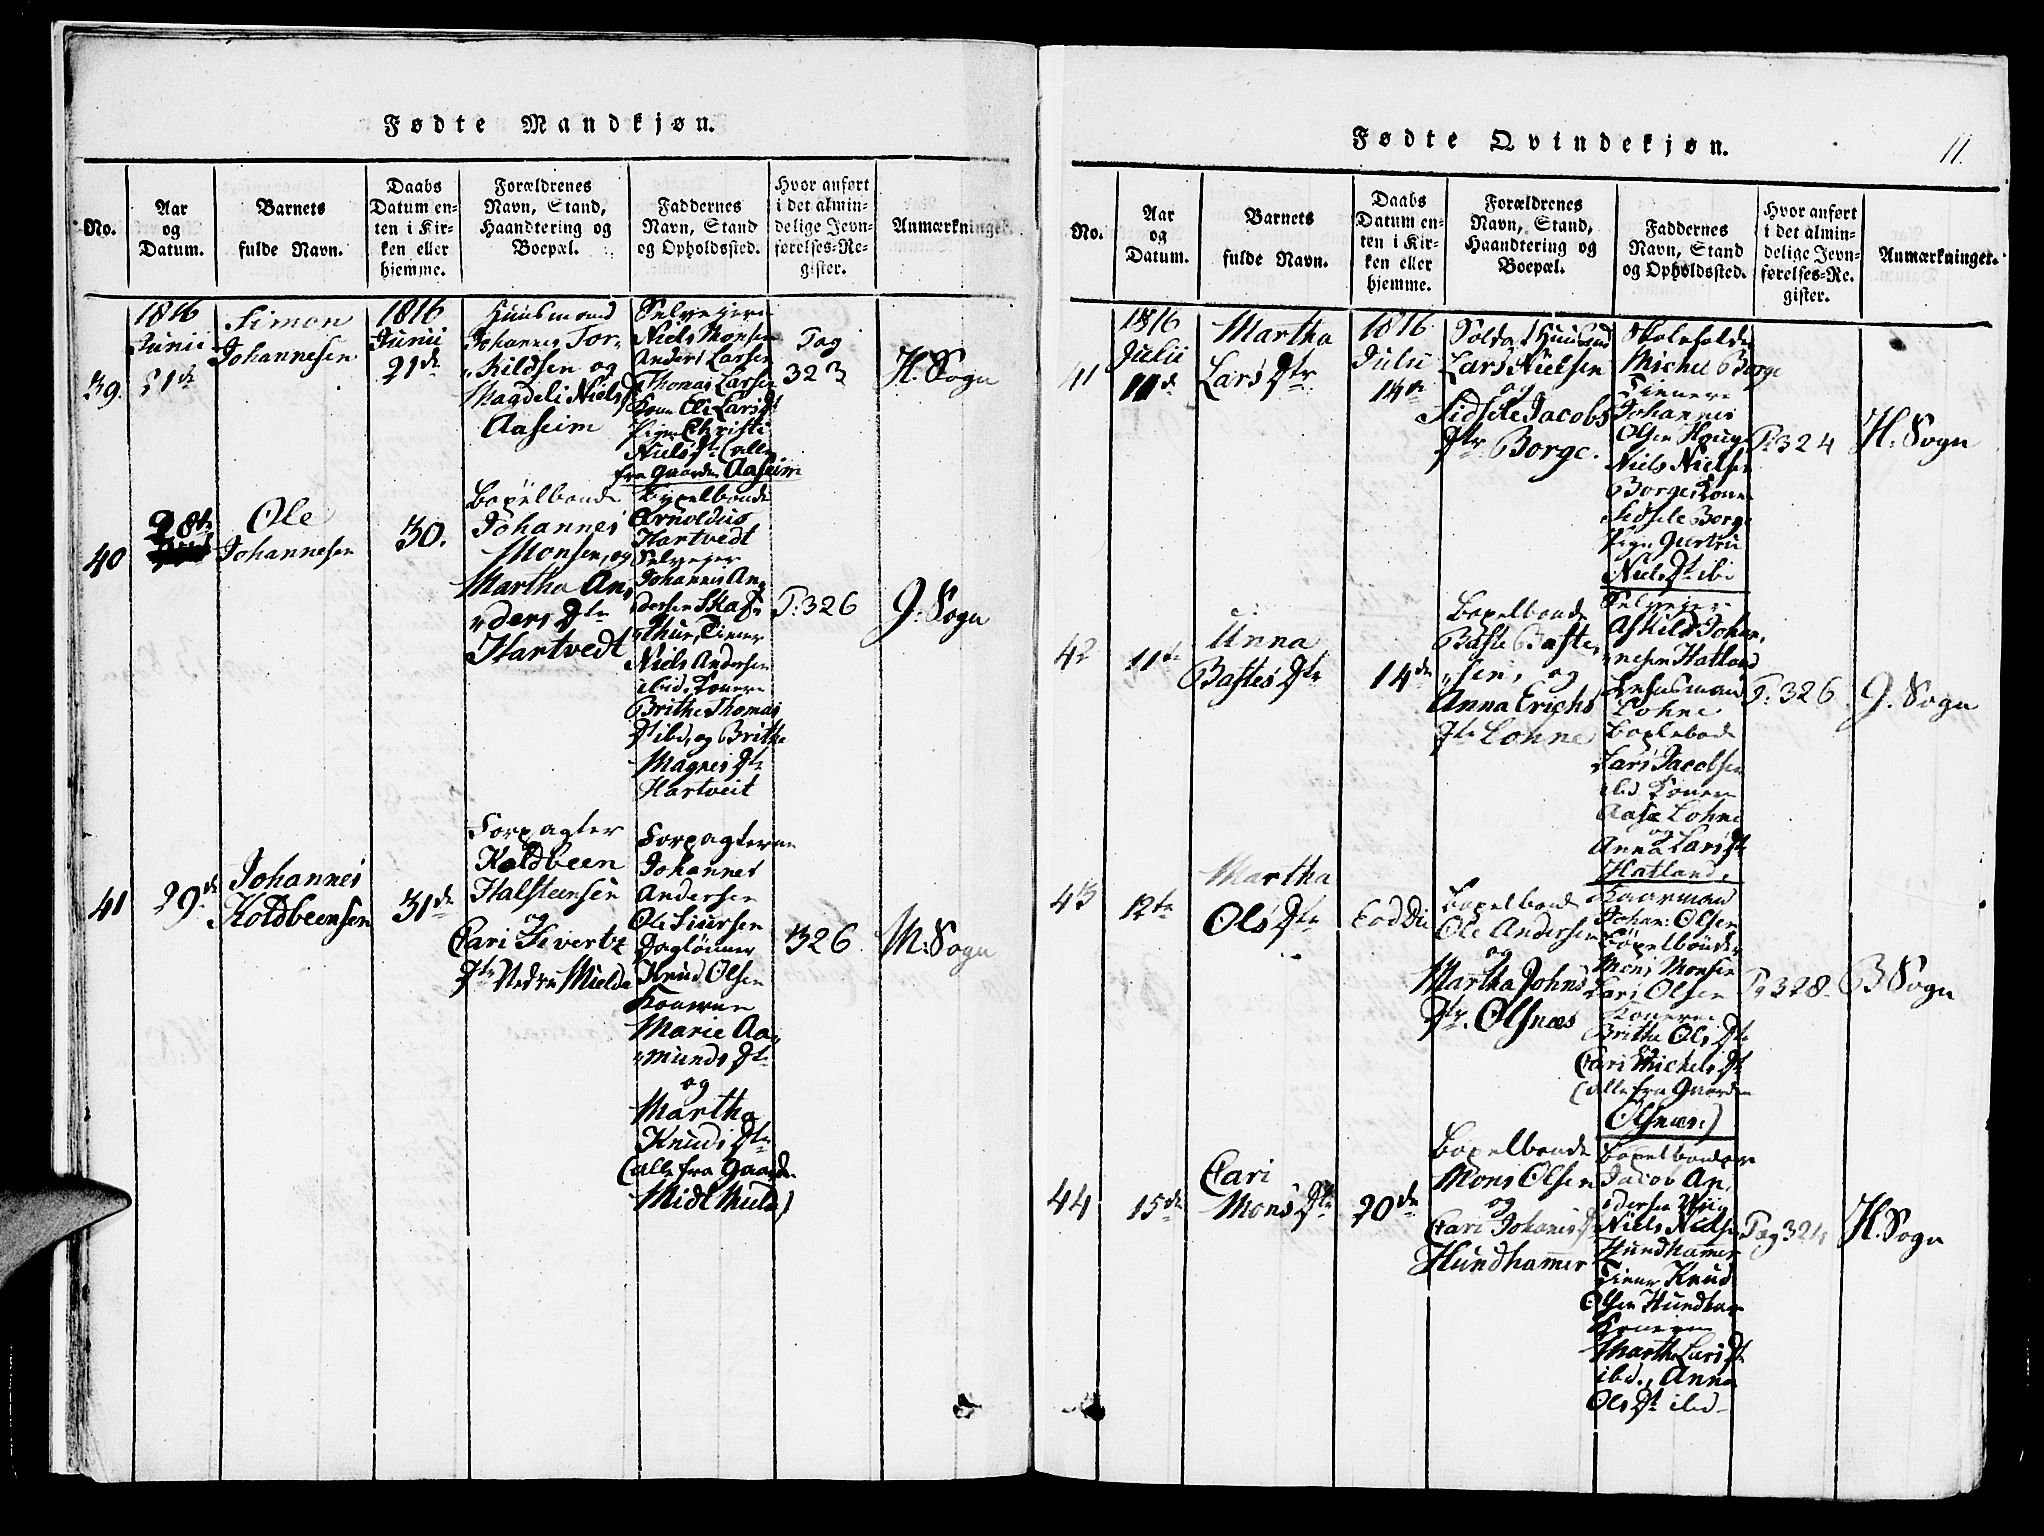 Fødte Mandkjøn.
No.
Aar
og
Datum.
Barnets
fulde Navn.
Daabs
Datum en-
ten i Kir-
ken eller
hjemme.
Forældrenes
Navn, Stand,
Haandtering og
Boepæl.
Faddernes
Navn, Stand
og Opholdssted.
Hvor anført
i det almin-
delige Jevn-
førelses-Re-
gister.
Anmærkninger.
39.
1816
Junii
21de
Simon
Johannesen
1816
Junii
21de
Huusmand
Johannes Tor-
kildsen og
Magdeli Niels
Aaseim
Selvejere
Niels Monsen
Anders Larsen
Thomas Larsen
Kone Eli Lars Dt
Pige Christi
Niels Dt (alle
fra Gaarden Aaseim
Pag
323
H. Sogn
40
28de
Ole
Johannesen
30.
Bopelbonde
Johannes
Monsen, og
Martha An-
ders Dtr
Hartvedt
Bopelbonde
Arnoldus
Hartvedt
Selvejer
Johannes An-
dersen Skaf-
thun, Tiener
Niels Andersen
ibid. Konere
Brithe Thomas
Dt ibd, og Brithe
Magnes Dtr
Hartveit
P: 326
G. Sogn
41
29de
Johannes
Koldbeensen
31de
Forpagter
Koldbeen
Halsteensen
og
Cari Siverts
Dtr Nedre Mielde
Forpagterne
Johannes
Andersen
Ole Siursen
Daglønner
Knud Olsen
Konerne
Marie Aa-
munds Dtr
og
Martha
Knuds Dtr
(alle fra Gaarden
Midt Mield)
326
M: Sogn
Fødte Qvindekjøn.
11.
No.
Aar
og
Datum.
Barnets
fulde Navn.
Daabs
Datum en-
ten i Kir-
ken eller
hjemme.
Forældrenes
Navn, Stand,
Haandtering og
Boepæl.
Faddernes
Navn, Stand
og Opholdssted.
Hvor anført
i det almin-
delige Jevn-
førelses-Re-
gister.
Anmærkninger.
41
1816
Julii
11de
Martha
Lars Dtr
1816
Julii
14de
Soldat Huusmd
Lars Nielsen
og
Sidsele Jacobs
Dtr Borge.
Skoleholder
Michel Borge
Tienere
Johannes
Olsen Houge
Niels Nielsen
Borge, Kone
Sidsele Borge
Pige Gurtru
Niels Dt ibi
P: 324
H: Sogn
42
11te
Anna
Bastes Dtr
14de
Bopelbonde
Baste Baste-
sen, og
Anna Erichs
Dtr Lohne
Selvejer
Askild Johan-
nesen Hatland
Lehnsmand
Lohne
Boplebode
Lars Jacobsen
ibd Konere
Aase Lohne
og
Anna Lars Dtr
Hatland.
P: 326
G. Sogn
43
12te
Martha
Ols Dtr
Eod Die
Bopelbonde
Ole Andersen
og
Martha Johns
Dtr. Olsnæs
Kaarmand
Johan: Olsen
Bopelbønder
Mons Monsen
Lars Olsen
Konerne
Brithe Ols Dtr
og
Cari Michels Dt
(alle fra Gaarden
Olsnæs)
Pg 328.
B Sogn
44
15de
Cari
Mons Dtr
20de
Bopelbonde
Mons Olsen
og
Cari Johanis Dt
Hundhammer
Bopelbonder
Jacob An-
dersen Wiig
Niels Nielsen
Hundhamer
Tiener Knud
Olsen Hundham
Konerne
Martha Lars Dtr
ibd., Anna
Ols Dt ibd
Pag 324
H. Sogn